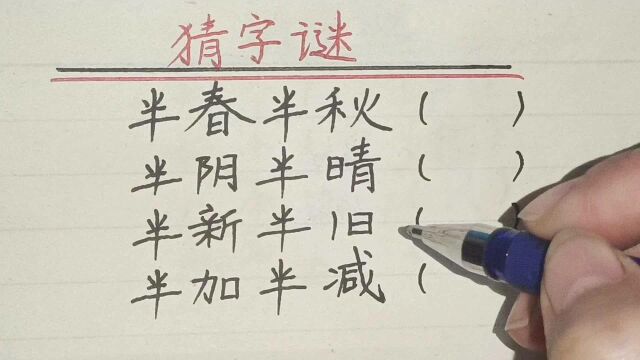 猜字谜
半春半秋( )
半阴半晴( )
半新半旧(
半加半减(